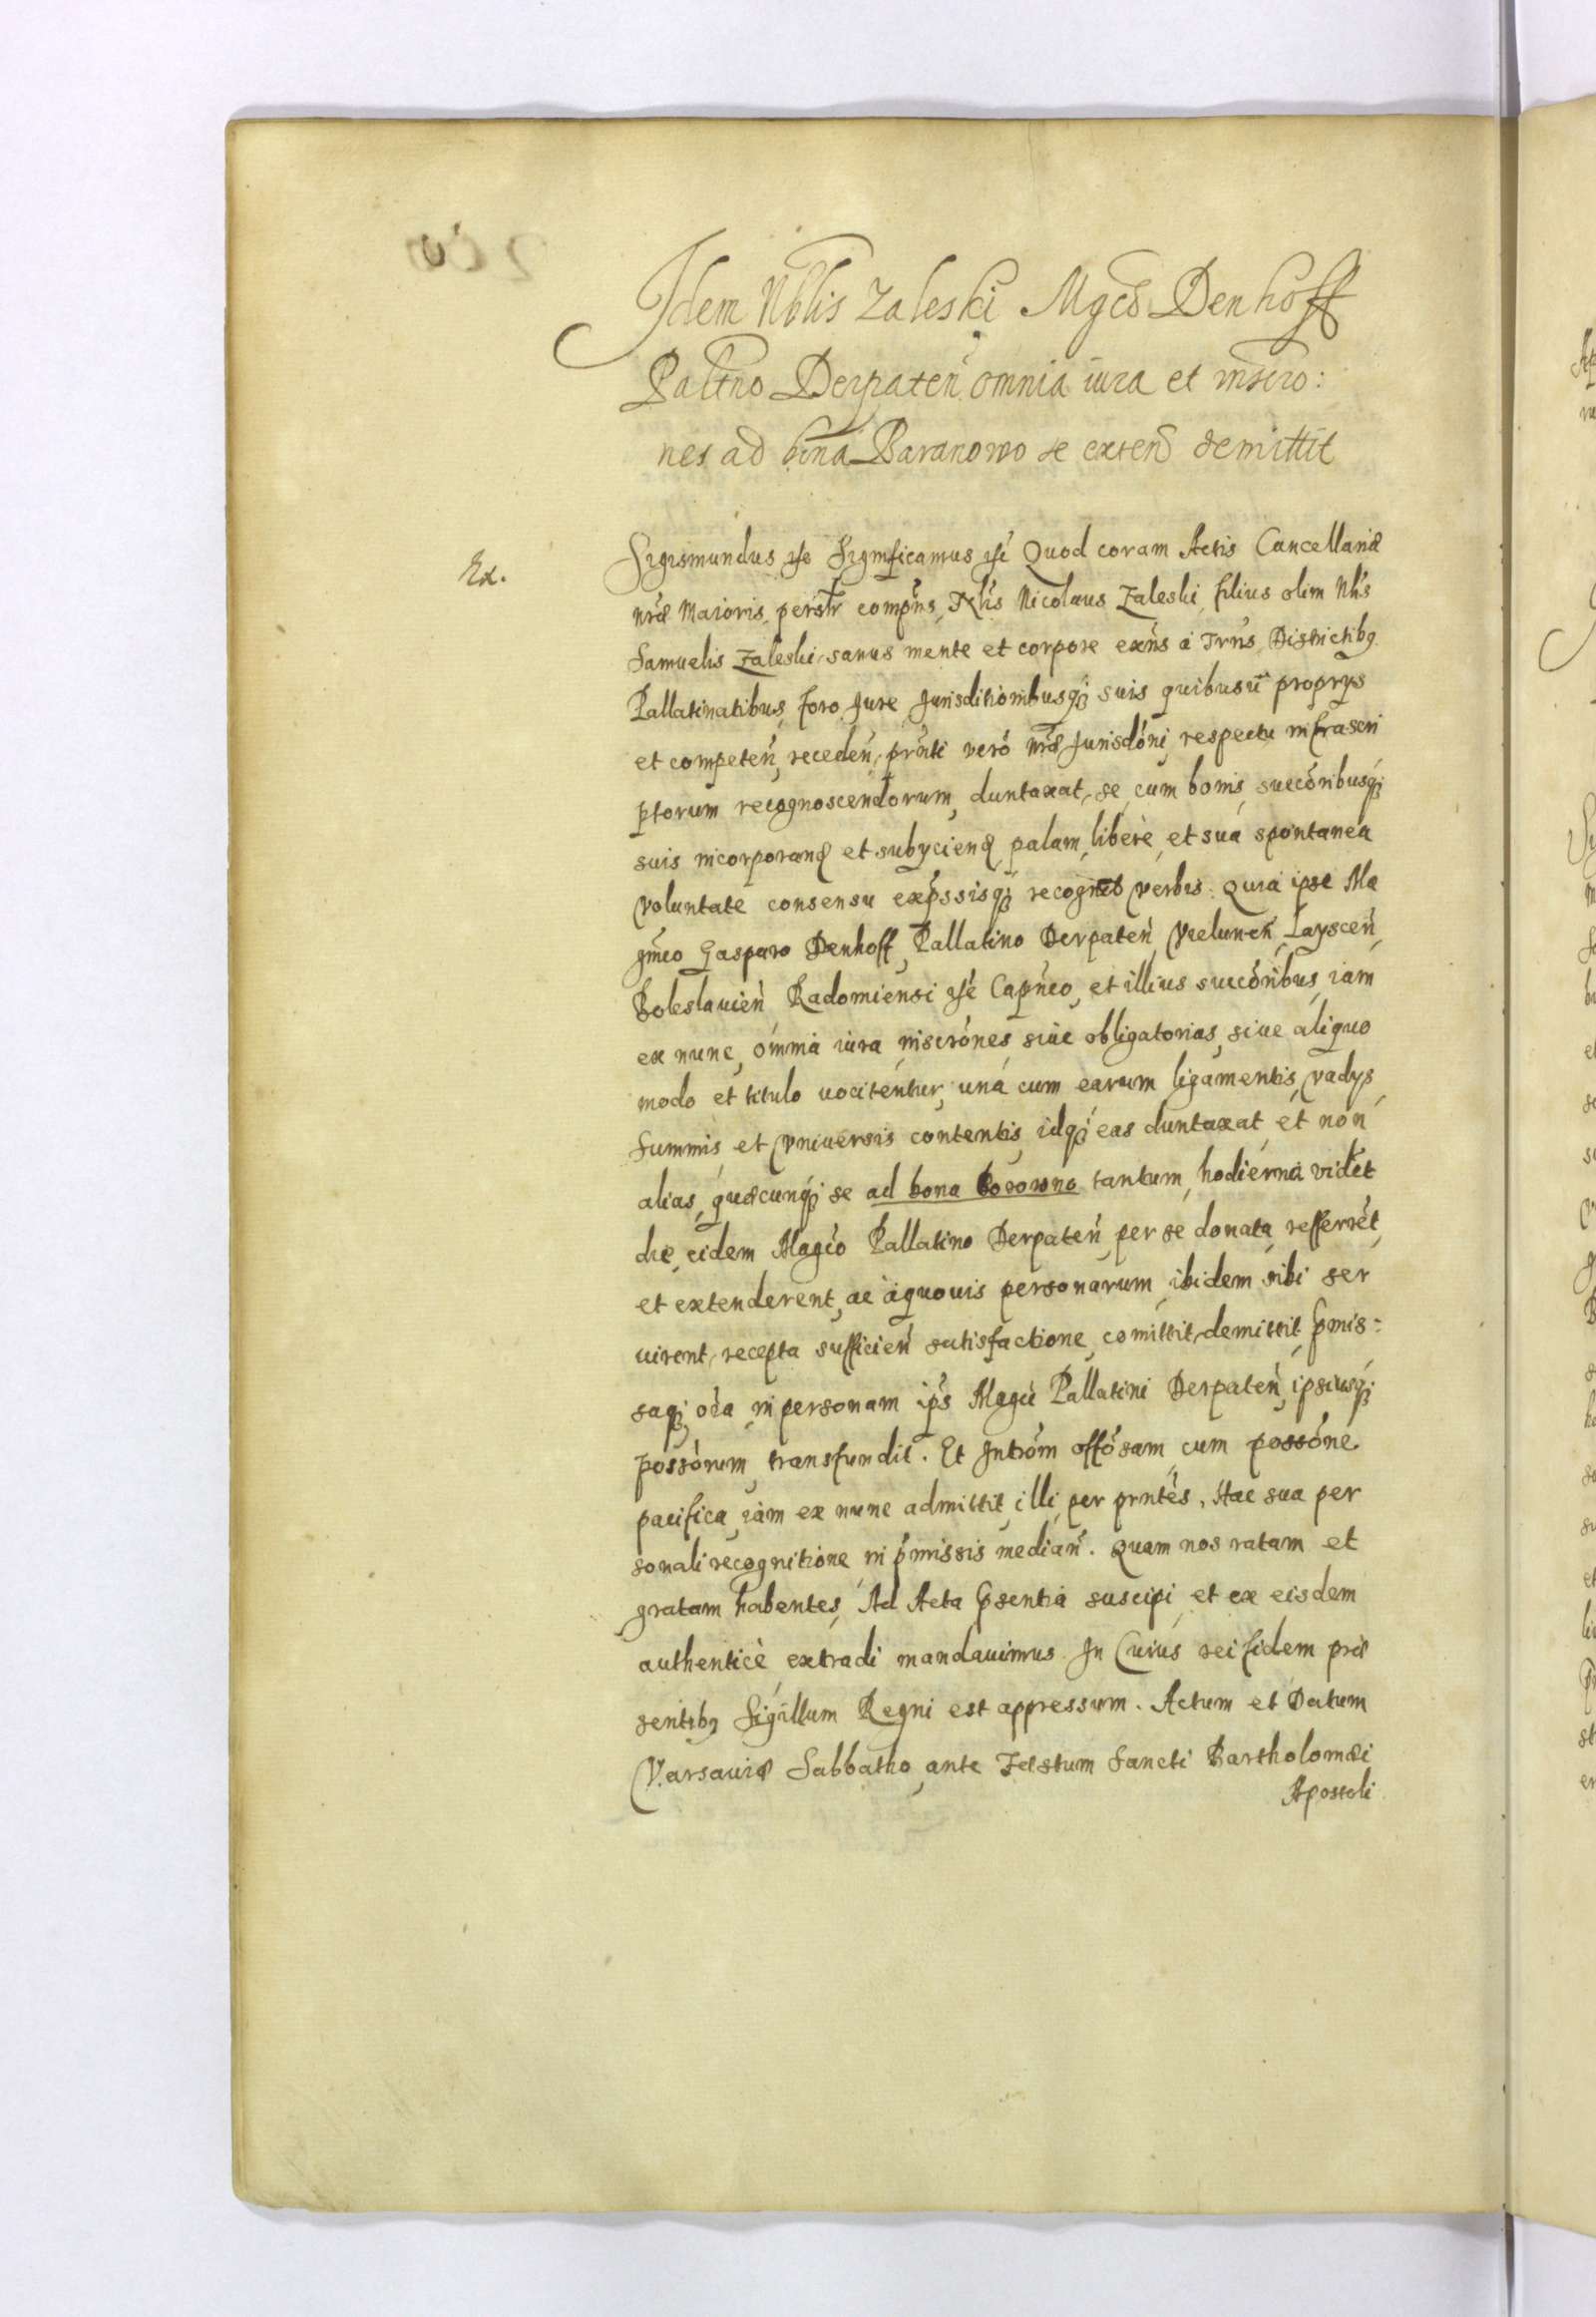 Idem Nblis Zaleski Mgco Denhoff
Paltno Derpateñ omnia iura et inscro:
nes ad bona Baranowo se exteñ demittit
Ex.
Sigismundus etc Significamus etc Quod coram Actis Cancellariæ
nræ Maioris, persr compns, Nlis Nicolaus Zaleski, filius olim Nlis
Samuelis Zaleski, sanus mente et corpore exns à Trris, Districtibq
Pallatinatibus, Foro Jure Jurisditionibusq; suis quibusũ proprys
et competeñ, recedeñ, prnti verò nræ Jurisdoni, respectu infrascri
ptorum recognoscendorum, duntaxat, se cum bonis, succoribusq;
suis incorporand et subyciend, palam, liberè, et sua spontanea
voluntate consensu expssisq; recognit verbis. Quia ipse Ma
gnico Gasparo Denhoff, Pallatino Derpateñ, Vieluneñ, Laysceñ,
Boleslauieñ Radomiensi etc Capneo, et illius succoribus, iam
ex nunc, omnia iura, inscrones, siue obligatorias, siue aliquo
modo et titulo uocitentur, unà cum earum ligamentis, vadys,
summis et vniuersis contentis, idq; eas duntaxat, et non
alias, quæcunq; se ad bona Borowno tantum, hodierna vidlt
die, eidem Magco Pallatino Derpateñ, per se donata, refferret,
et extenderent, ac àquouis personarum, ibidem sibi ser
uirent, recepta sufficieñ satisfactione, comittit, demittit, pmis=
saq; oia, in personam ips Magci Pallatini Derpateñ, ipsiusq;
possorum, transfundit. Et Introm offosam, cum possone
pacifica, iam ex nunc admittit, illi, per prntes, Hac sua per
sonali recognitione, in pmissis mediañ. Quam nos ratam et
gratam habentes, Ad Acta psentia suscipi, et ex eisdem
authenticè extradi mandauimus. In Cuius rei fidem præ
sentibq Sigillum Regni est appressum. Actum et Datum
Varsauiæ Sabbatho, ante Festum Sancti Bartholomæi
Apostoli